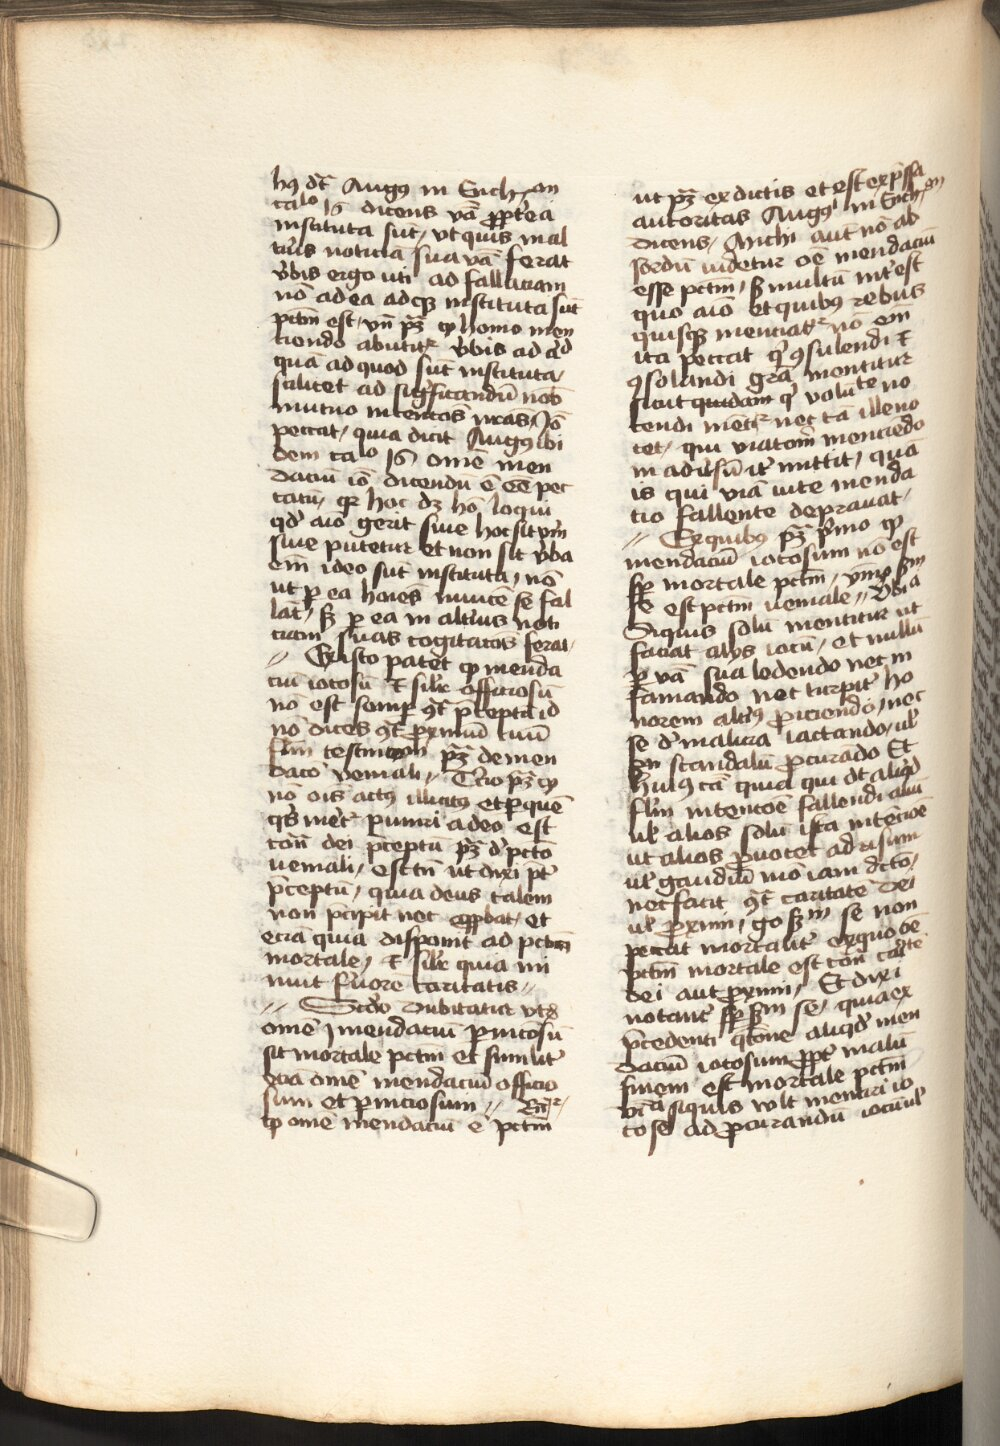 hꝰ dt̄ Augꝰ inEnch,on
calo 16 dicens vā ꝓpt̄ea
instituta sut, ut quis in al
tiꝰs noticiā sua vā ferat
v̄bis ergo uti ad fallaciam
nō ad ea ad q̄ instituta sūt
pctm̄ est, vn̄ pꝫ ꝙ homo men
tiendo abutitr v̄bis ad aɫd
quā ad quod sūt instituta,
scilicet ad sigͥficandū nob̄
mutuo intentos nr̄as, Iō
peccat, quia dicit Augꝰ ibi
dem calo 16 Omē men
daciū iō dicendū ē eē pec
catū, qr hoc dꝫ hō loqui
qd̄ aīo gerit siue hoc sit vm̄
siue putetur et non sit v̄ba
em̄ ideo sut instituta, nō
ut ꝑ ea hoīes inuicē se fal
lāt, sꝫ ꝑ ea in altiꝰs noti
ciam suas cogitatōs ferāt,
// Ex isto patet ꝙ menda
ciū iocosū & silr̄ officiosū
nō est semꝑ 9t̄ p̄cepta id
nō dices 9t̄ ꝓximū tuū
flm̄ testimon pꝫ de men
dacō veniali // Tcio pꝫ ꝙ
nō oīs actꝰ illicitꝰ et ꝑ quē
qs met̄ꝰ puniri adeo est
con̄ dei p̄ceptū pꝫ d̄ pctō
veniali, est tn̄ ut dixi pt̄
p̄ceptū, quia deus talem
non p̄cipit nec apꝓbat, et
eciā quia disponit ad pctm̄
mortale, & silr̄ quia mi
nuit f̄uorē caritatis //
// Scdo dubitatur utꝝ
omē mendaciū ꝑniciosū
sit mortale pctm̄ et similit̄
circa omē mendaciū officio
sum et ꝑniciosum // Rn̄r,
ꝙ omē mendaciū ē pctm̄
ut pꝫ ex dictis et est exp̄ssa
autoritas Augꝰi in Ench,on
dicens, Michi aut nō ab
sordū uidetur oē mendaciū
esse pctm̄, sꝫ multū int̄est
quo aīo et quibꝰ rebus
quisqꝫ menciatr nō em̄
ita peccat q̄ 9sulendi &
9solandi grā mentitur
sicut quidam q̄ volūte no
cendi metr nec tā ille no
cet, qui viatorē menciēdo
in aduersū it̄ mittit, quā
is qui viā uite menda
cio fallente deprauat,
// Ex quibꝰ pꝫ p̄mo ꝙ
mendaciū iocosum nō est
sꝑ mortale pctm̄, ymo sꝫm
se est pctm̄ veniale // Vbi a
Siquis solū mentitur ut
faciat alijs iocū, et nullū
ꝑ vā sua ledendo nec in
famando nec turpit̄ ho
norem altiꝰ ꝓiciendo, nec
se d̄ malicia iactando, uɫ
on scandalū ꝓcurādo Et
huiꝰ cā quia qui dt̄ aliqd̄
flm̄ intencōe fallendi aliū
uɫ alios solū ista intēciōe
ut alios ꝓuocet ad risum
uɫ gaudiū mō iam dcto,
nec facit 9t̄ caritatē dei
uɫ ꝓximi, go sꝫm se non
peccat mortalit̄ ex quo oē
pctm̄ mortale est con̄ caritē
dei aut ꝓximi, Et dixi
notant̄ sꝑ sꝫm se, quia ex
p̄cedenti q̄tōne aliqd̄ men
daciū iocosum ꝓpt̄ malū
finem est mortale pctm̄
vt̄ si quis vult mentiri io
cose ad ꝓcurandū iocū uɫ